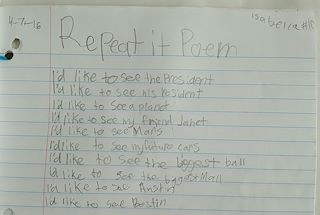 4-7-16
Isabella #18
Repeat it Poem
I'd like to see the President
I'd like to see his resident
I'd like to see a planet
I'd like to see my friend Janet
I'd like to see Mars
I'd like to see my future cars
I'd like to see the biggest ball
I'd like to see the biggest Mall
I'd like to see Austin
I'd like to see Bostin